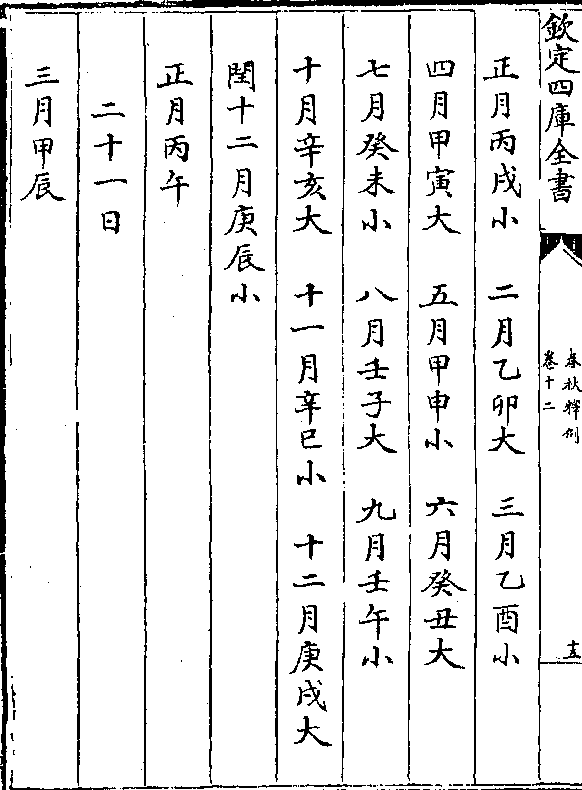 欽定四庫全書
春秋釋例
卷十二
十五
正月丙戌小 二月乙卯大 三月乙酉小
四月甲寅大 五月甲申小 六月癸丑大
七月癸未小 八月壬子大 九月壬午小
十月辛亥大 十一月辛巳小 十二月庚戌大
閏十二月庚辰小
正月丙午
二十一日
三月甲辰